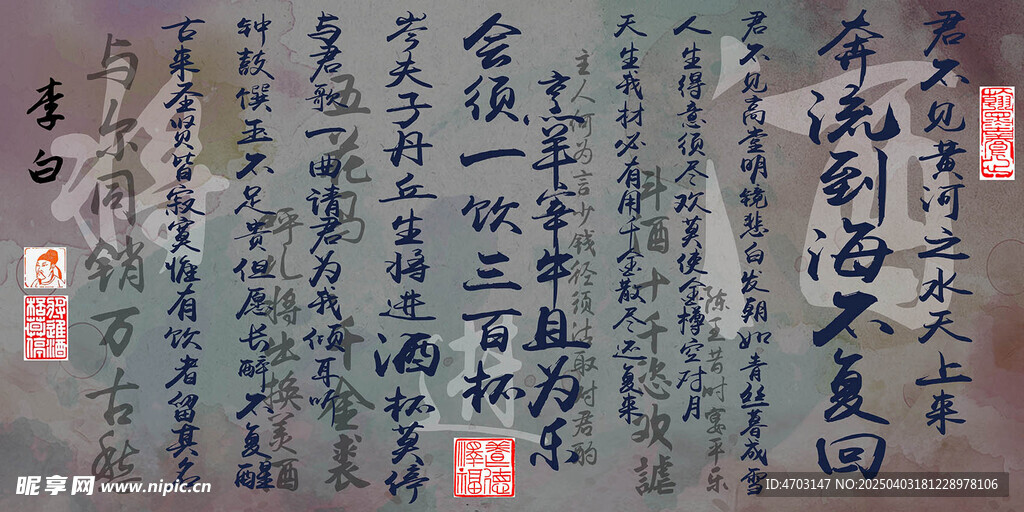 君不见黄河之水天上来
奔流到海不复回
君不见高堂明镜悲白发朝如青丝暮成雪
人生得意须尽欢莫使金樽空对月
天生我材必有用千金散尽还复来
烹羊宰牛且为乐
会须一饮三百杯
岑夫子丹丘生将进酒杯莫停
与君歌一曲请君为我倾耳听
钟鼓馔玉不足贵但愿长醉不复醒
古来圣贤皆寂寞惟有饮者留其名
陈王昔时宴平乐
斗酒十千恣欢谑
主人何为言少钱径须沽取对君酌
五花马
千金裘
呼儿将出换美酒
与尔同销万古愁
李白
将进酒
养德
泽福
昵享网 www.nipic.cn
ID:4703147 NO:20250403181228978106